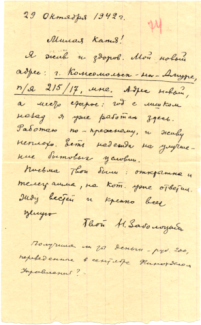 29 октября 1942 г.
24
Милая Катя!
Я жив и здоров. Мой новый
адрес: г. Комсомольск-на-Амуре,
п/я 215/17, мне. Адрес новый,
а место старое: год с лишком
назад я уже работал здесь.
Работаю по-прежнему, и живу
неплохо. Есть надежда на улучше-
ние бытовых условий.
Письма твои были: открытка и
телеграмма, на кот. уже ответил.
Жду вестей и крепко всех
целую
Твой Н Заболоцкий
Получила ли ты деньги - руб.
переведенные в октябре
Управления?